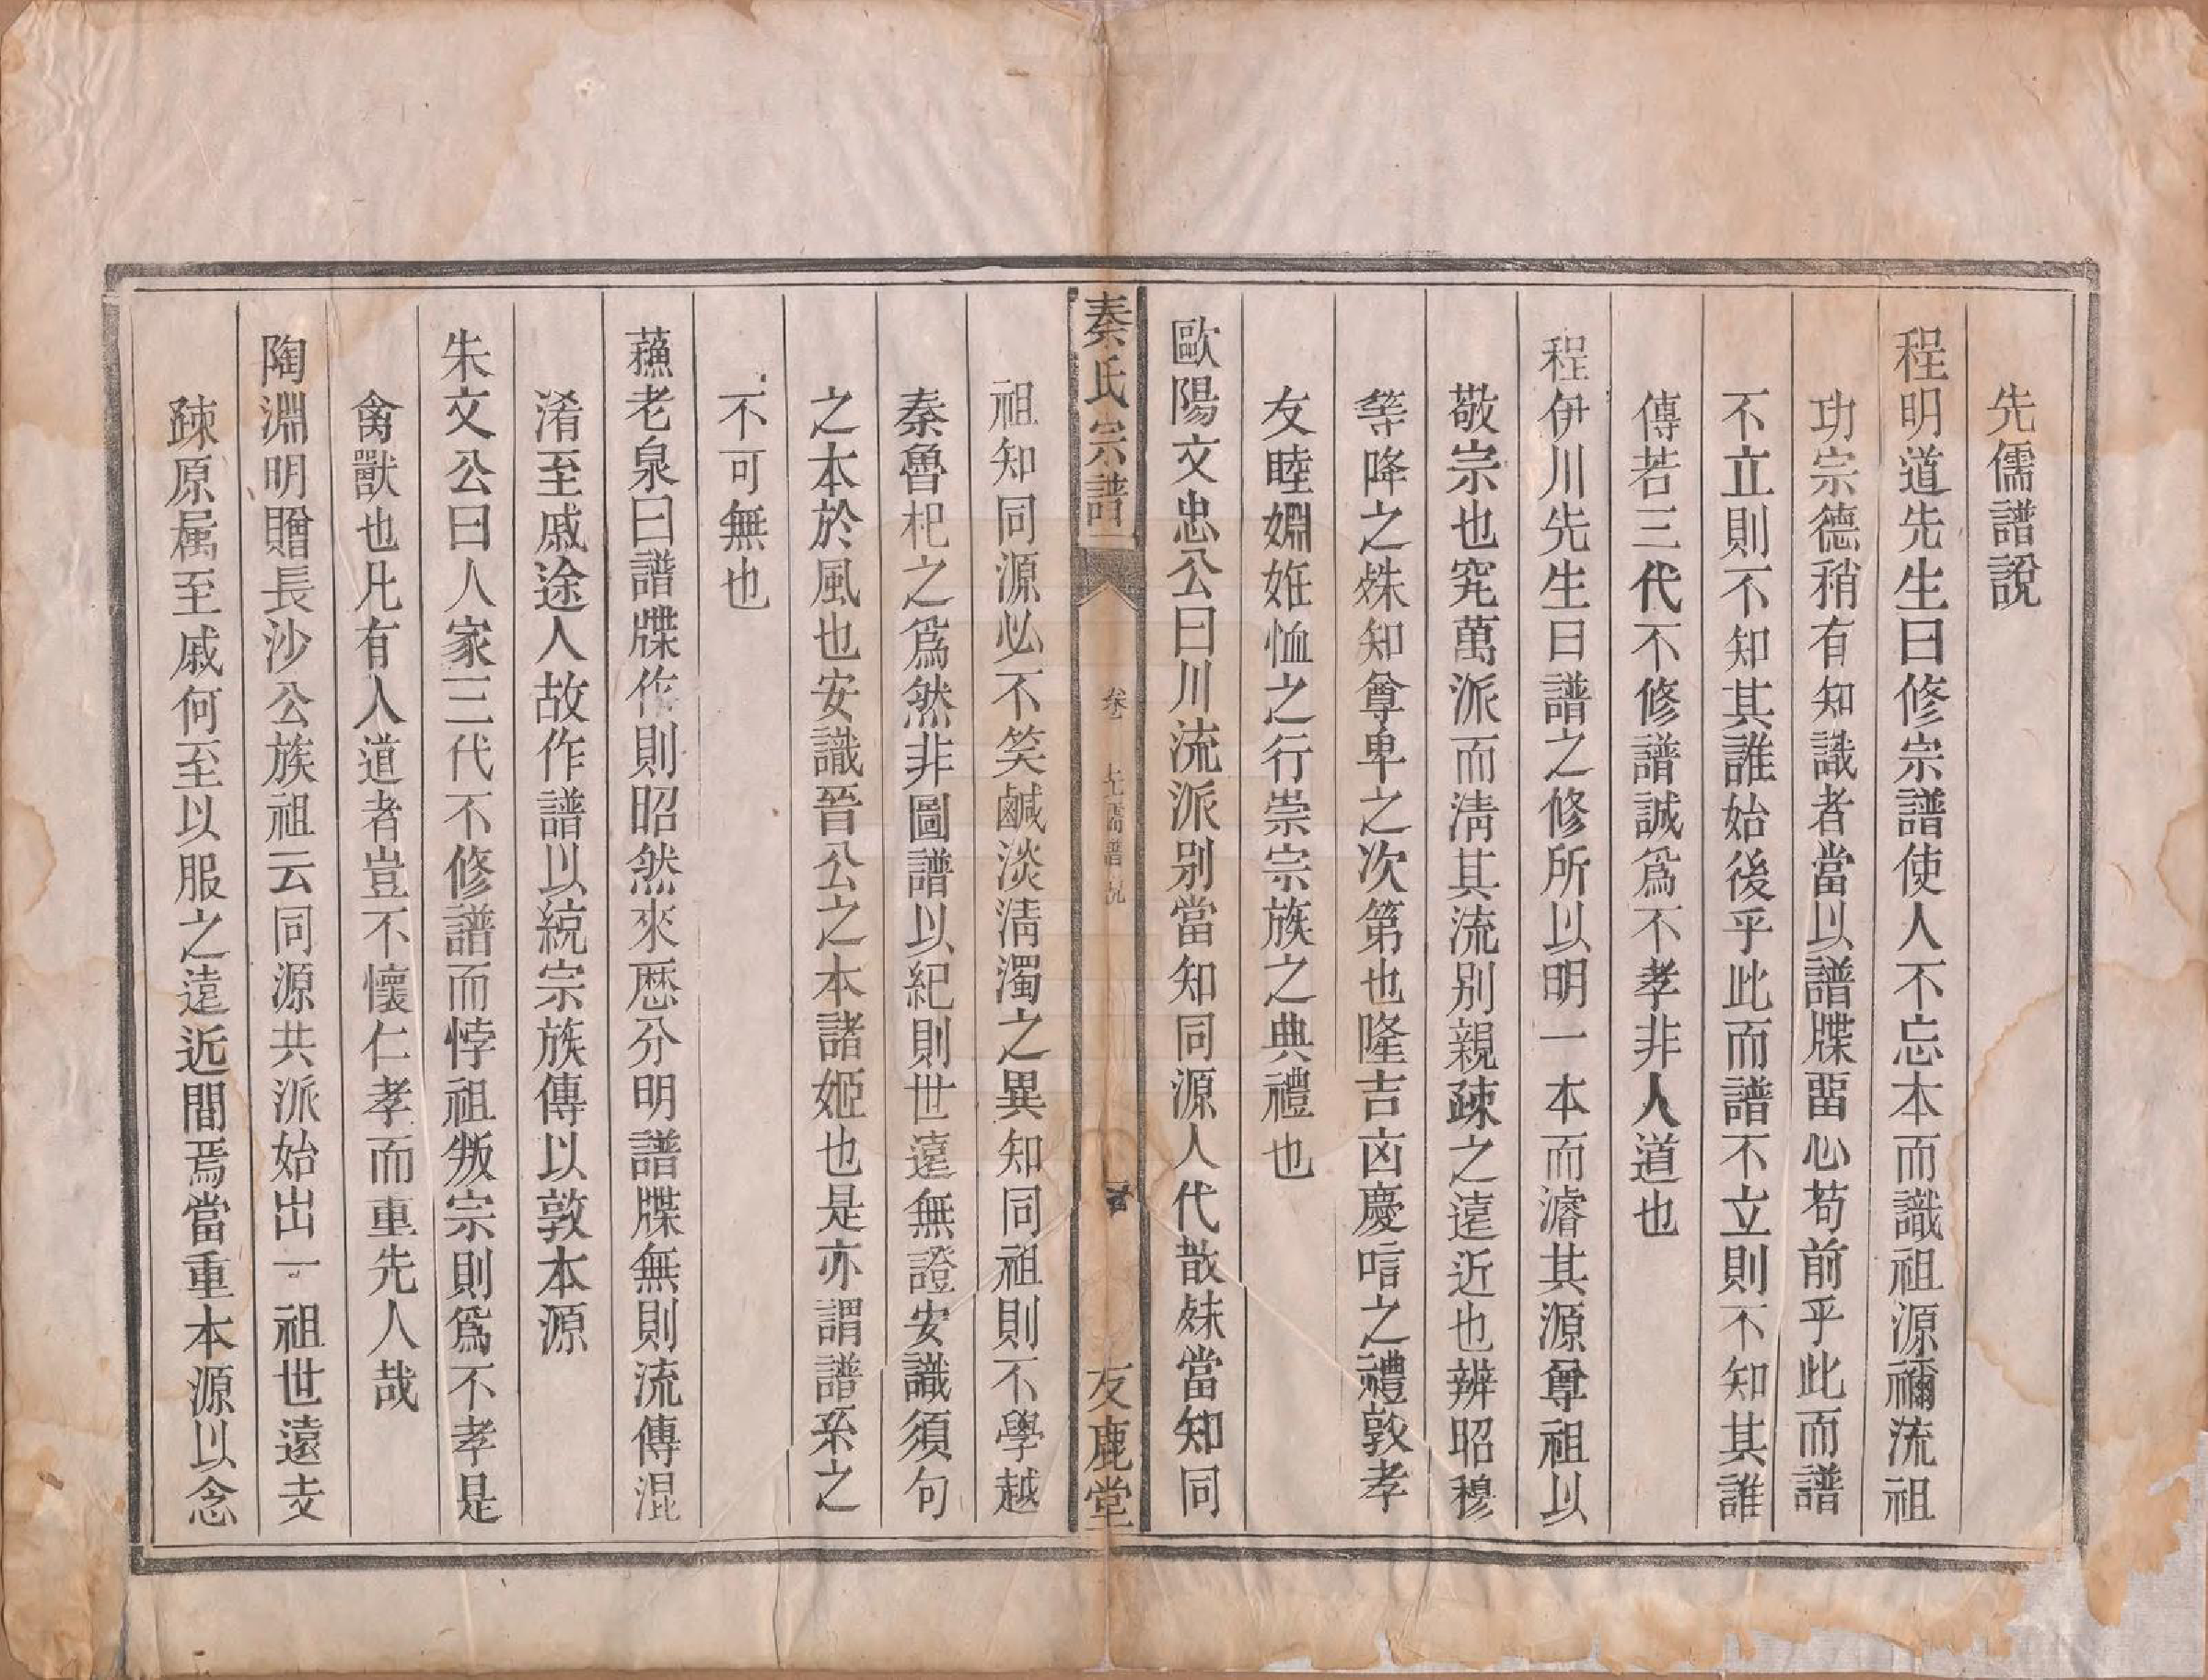 先儒譜說
程明道先生曰修宗譜使人不忘本而識祖源禰流祖
功宗德稍有知識者當以譜牒畱心苟前乎此而譜
不立則不知其誰始後乎此而譜不立則不知其誰
傳若三代不修譜誠爲不孝非人道也
程伊川先生曰譜之修所以明一本而濬其源尊祖以
敬宗也究萬派而淸其流别親疎之遠近也辨昭穆
等降之殊知尊卑之次第也隆吉凶慶唁之禮敦孝
友睦婣姙恤之行崇宗族之典禮也
歐陽文忠公曰川流派别當知同源人代散殊當知同
秦氏宗譜
卷
先儒譜說
友鹿堂
祖知同源必不笑鹹淡淸濁之異知同祖則不學越
秦魯杞之爲然非圖譜以紀則世遠無證安識須句
之本於風也安識晉公之本諸姬也是亦謂譜系之
不可無也
蘓老泉曰譜牒作則昭然來歷分明譜牒無則流傳混
淆至戚途人故作譜以統宗族傳以敦本源
朱文公曰人家三代不修譜而悖祖叛宗則爲不孝是
禽獸也凡有人道者豈不懷仁孝而重先人哉
陶淵明贈長沙公族祖云同源共派始出一祖世遠支
疎原属至戚何至以服之遠近間焉當重本源以念